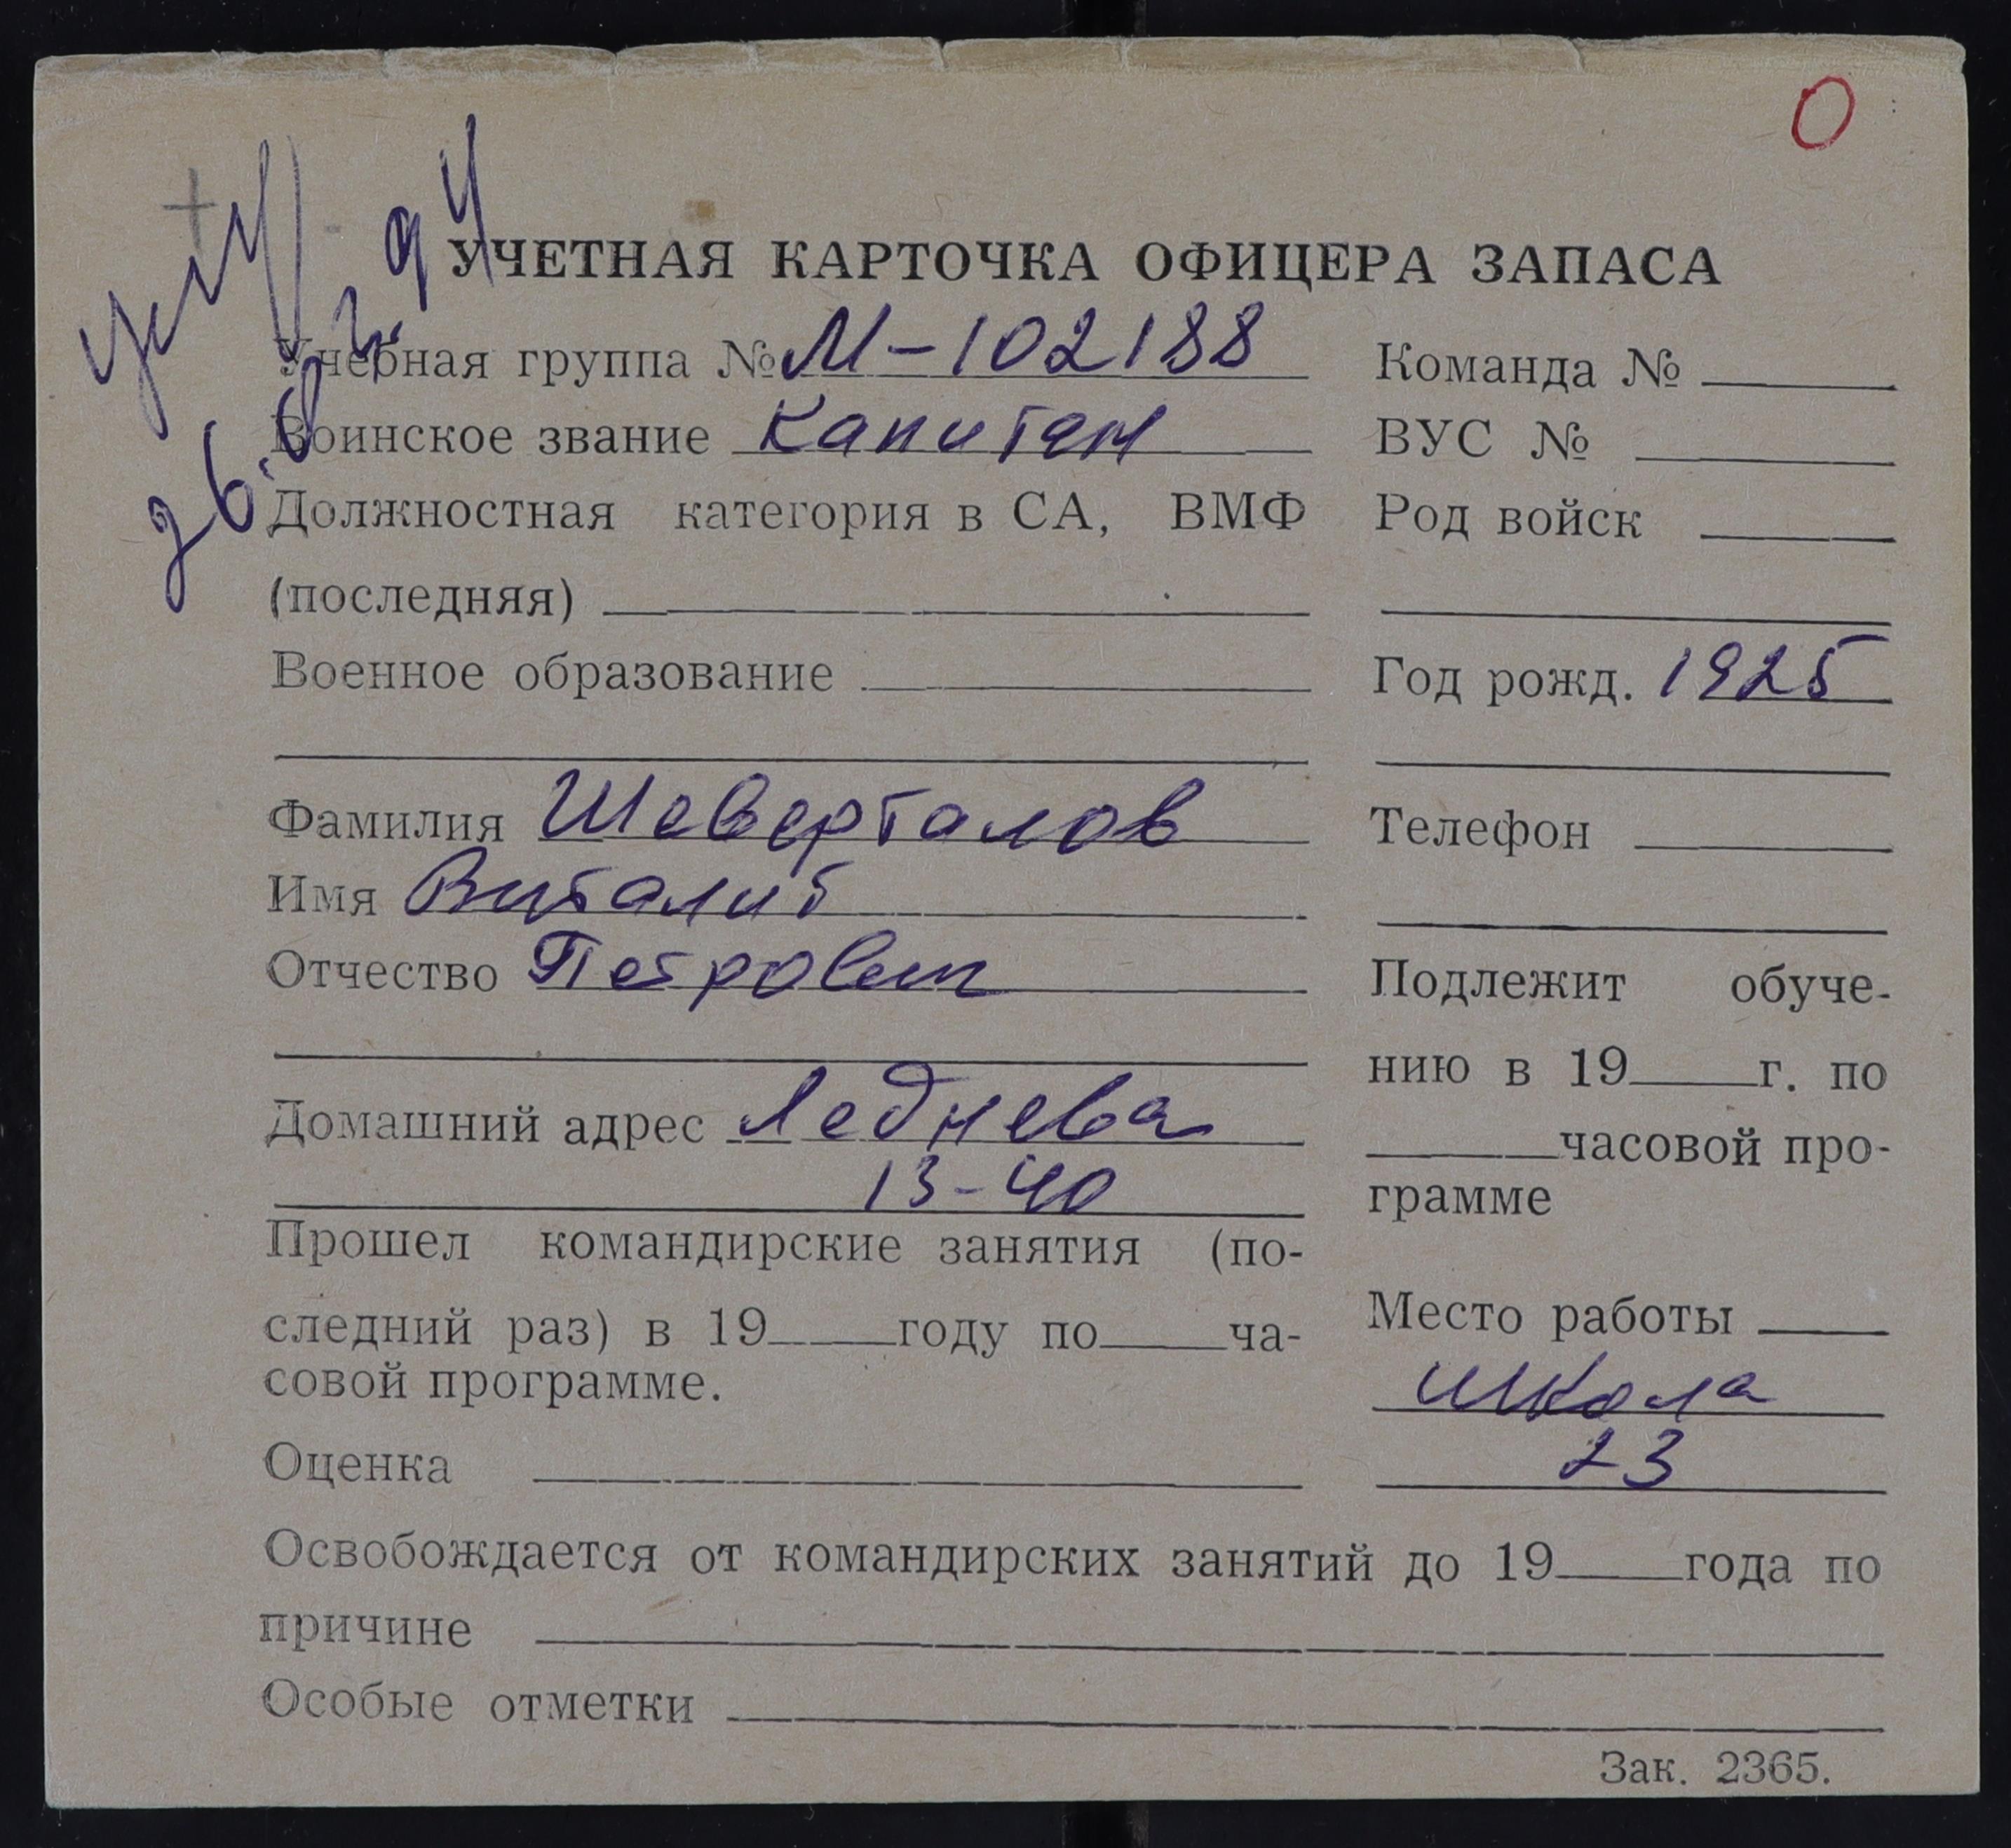 О
УЧЕТНАЯ КАРТОЧКА ОФИЦЕРА ЗАПАСА
Учебная группа № М-102188
Воинское звание Капитан
Должностная категория в СА, ВМФ
(последняя)
Военное образование
Фамилия Шеверталов
Имя Виталий
Отчество Петрович
Домашний адрес Леднева
13-40
Прошел командирские занятия (по-
следний раз) в 19 году по ча-
совой программе.
Оценка
Команда №
ВУС №
Род войск
Год рожд. 1925
Телефон
Подлежит обуче-
нию в 19 г. по
часовой про-
грамме
Место работы
школа
23
Освобождается от командирских занятий до 19 года по
причине
Особые отметки
Зак. 2365.